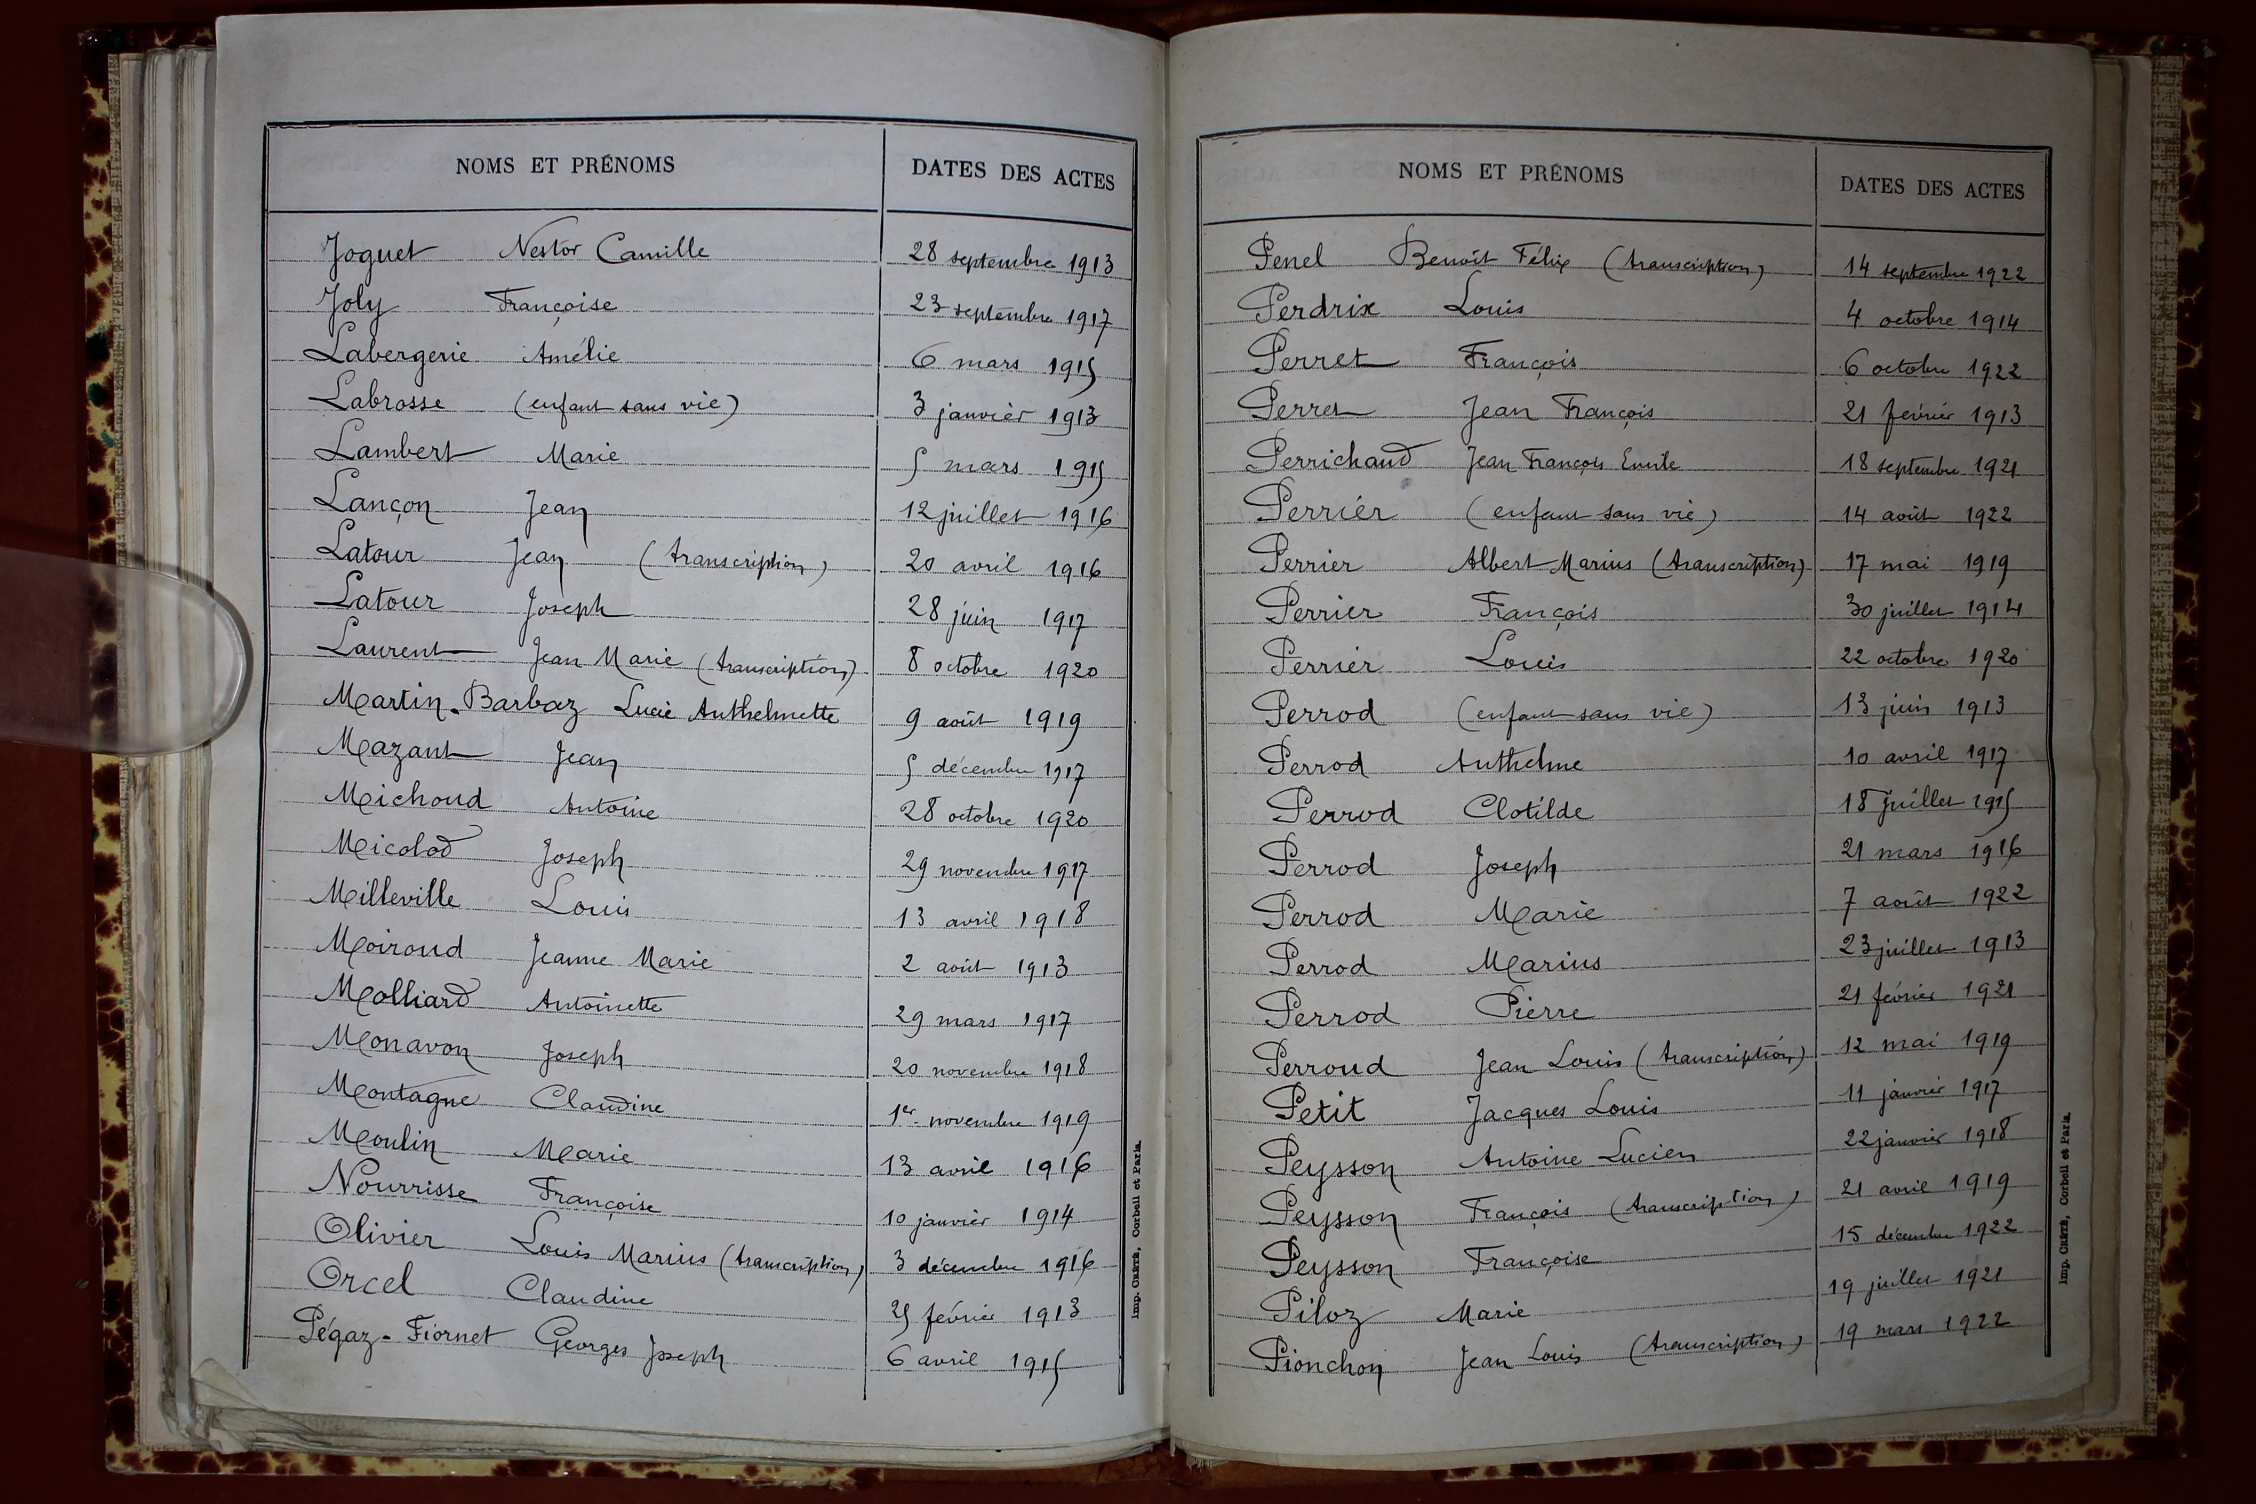 NOMS ET PRÉNOMS DATES DES ACTES
Joguet Nestor Camille 28 septembre 1913
Joly Françoise 23 septembre 1917
Labergerie Amélie 6 mars 1915
Labrosse (enfant sans vie) 3 janvier 1913
Lambert Marie 5 mars 1915
Lançon Jean 12 juillet 1916
Latour Jean (transcription) 20 avril 1916
Latour Joseph 28 juin 1917
Laurent Jean Marie (transcription) 8 octobre 1920
Martin-Barbaz Lucie Anthelmette 9 août 1919
Mazant Jean 5 décembre 1917
Michoud Antoine 28 octobre 1920
Micolod Joseph 29 novembre 1917
Milleville Louis 13 avril 1918
Moiroud Jeanne Marie 2 août 1913
Molliard Antoinette 29 mars 1917
Monavon Joseph 20 novembre 1918
Montagne Claudine 1er novembre 1919
Moulin Marie 13 avril 1916
Nourrisse Françoise 10 janvier 1914
Olivier Louis Marius (transcription) 3 décembre 1916
Orcel Claudine 25 février 1913
Pégaz-Fiornet Georges Joseph 6 avril 1915
Imp. CRÉTÉ, Corbeil et Paris.
NOMS ET PRÉNOMS DATES DES ACTES
Penel Benoît Félix (transcription) 14 septembre 1922
Perdrix Louis 4 octobre 1914
Perret François 6 octobre 1922
Perret Jean François 21 février 1913
Perrichaud Jean François Emile 18 septembre 1921
Perrier (enfant sans vie) 14 août 1922
Perrier Albert Marius (transcription) 17 mai 1919
Perrier François 30 juillet 1914
Perrier Louis 22 octobre 1920
Perrod (enfant sans vie) 13 juin 1913
Perrod Anthelme 10 avril 1917
Perrod Clotilde 18 juillet 1915
Perrod Joseph 21 mars 1916
Perrod Marie 7 août 1922
Perrod Marius 23 juillet 1913
Perrod Pierre 21 février 1921
Perroud Jean Louis (transcription) 12 mai 1919
Petit Jacques Louis 11 janvier 1917
Peysson Antoine Lucien 22 janvier 1918
Peysson François (transcription) 21 avril 1919
Peysson Françoise 15 décembre 1922
Piloz Marie 19 juillet 1921
Pionchon Jean Louis (transcription) 19 mars 1922
Imp. CRÉTÉ, Corbeil et Paris.